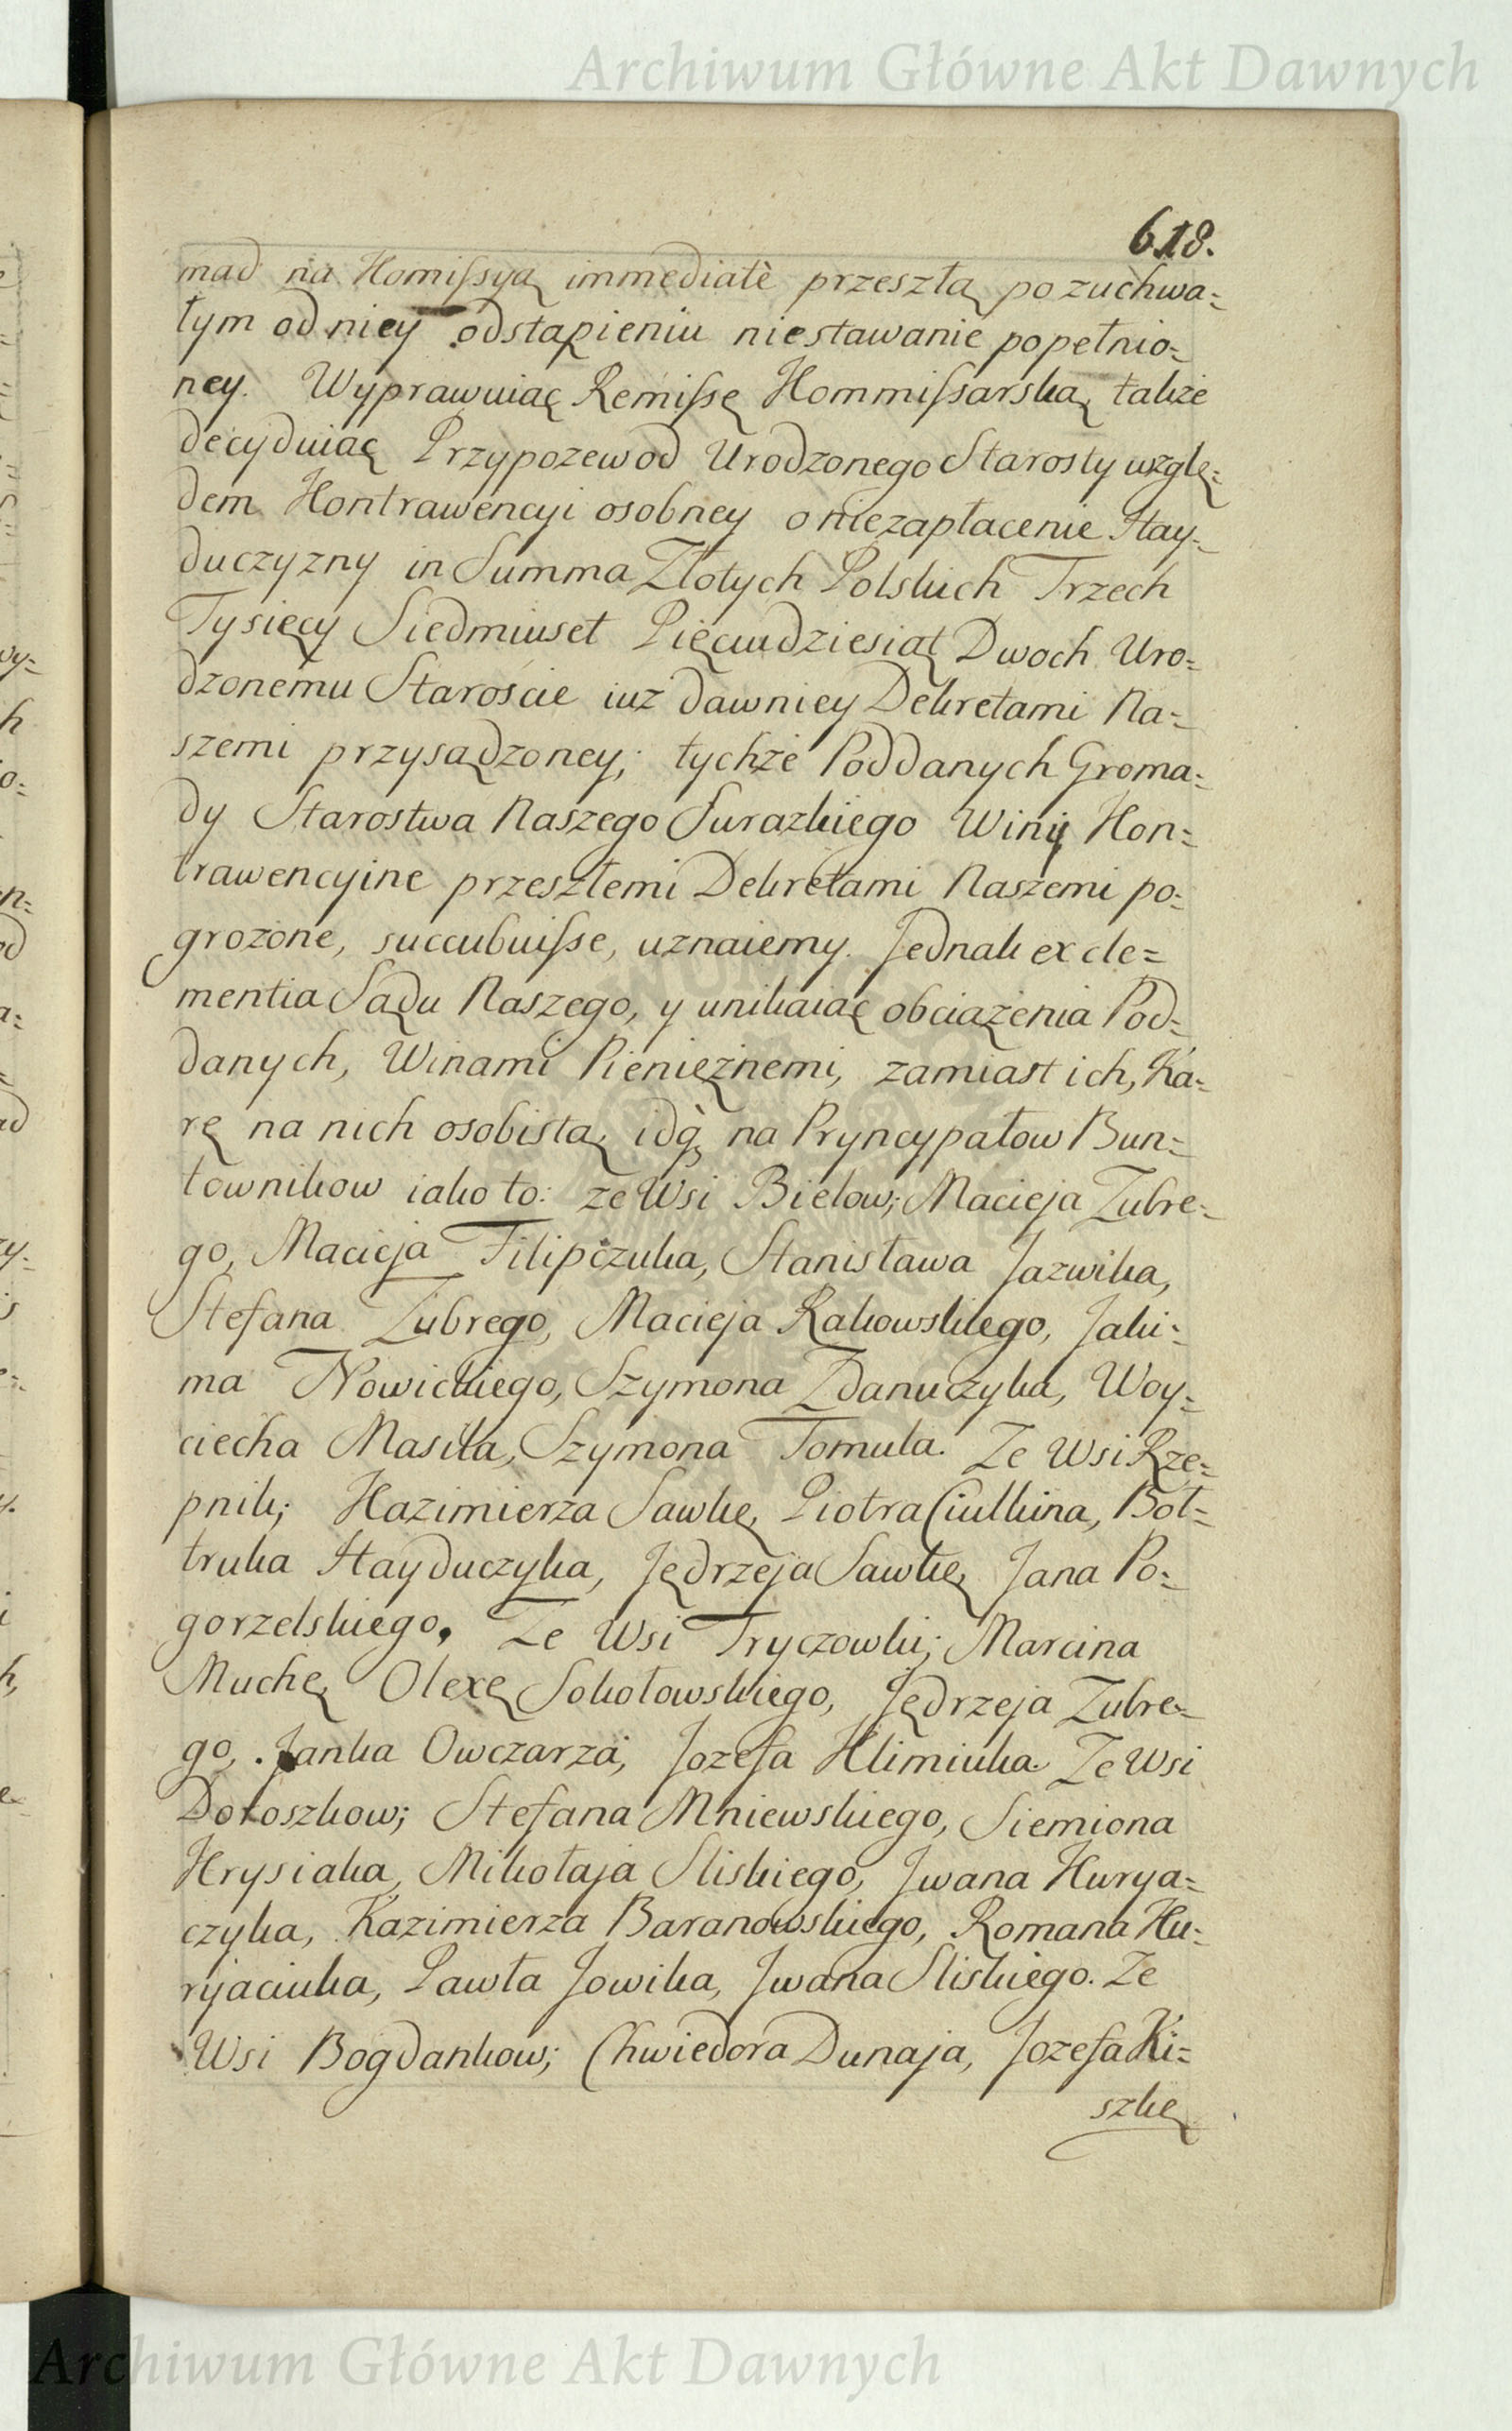 Archiwum Główne Akt Dawnych
618.
mad na Kommissyą immediatè przeszłą po zuchwa=
łym od niey odstąpieniu niestawanie popełnio=
ney. Wyprawuiąc Remissę Kommissarską, także
decyduiąc Przypozew od Urodzonego Starosty wzglę=
dem Kontrawencyi osobney o niezapłacenie Hay=
duczyzny in Summa Złotych Polskich Trzech
Tysięcy Siedmiuset Pięciudziesiąt Dwoch Uro=
dzonemu Staroście iuż dawniey Dekretami Na=
szemi przysądzoney; tychże Poddanych Groma=
dy Starostwa Naszego Surazkiego Winy Kon=
trawencyine przeszłemi Dekretami Naszemi po=
grożone, succubuisse, uznaiemy. Jednak ex cle=
mentia Sądu Naszego, y unikaiąc obciążenia Pod=
danych, Winami Pieniężnemi, zamiast ich, Ka=
rę na nich osobistą, idq, na Pryncypałow Bun=
townikow iako to: ze Wsi Bielow; Macieja Zubre=
go, Macieja Filipczuka, Stanisława Jazwika,
Stefana Zubrego, Macieja Rakowskiego, Jaki=
ma Nowickiego, Szymona Zdanuczyka, Woy=
ciecha Masiła, Szymona Tomula. Ze Wsi Rze=
pnik; Kazimierza Sawkę, Piotra Ciulkina, Bół=
truka Hayduczyka, Jędrzeja Sawkę, Jana Po=
gorzelskiego. Ze Wsi Tryczowki; Marcina
Muchę, Olexę Sokołowskiego, Jędrzeja Zubre=
go, Janka Owczarza, Jozefa Klimiuka. Ze Wsi
Dołoszkow; Stefana Mniewskiego, Siemiona
Hrysiaka, Mikołaja Sliskiego, Jwana Kurya=
czyka, Kazimierza Baranowskiego, Romana Ku=
ryjaciuka, Pawła Jowika, Jwana Sliskiego. Ze
Wsi Bogdankow; Chwiedora Dunaja, Jozefa Ki=
szkę
Archiwum Główne Akt Dawnych